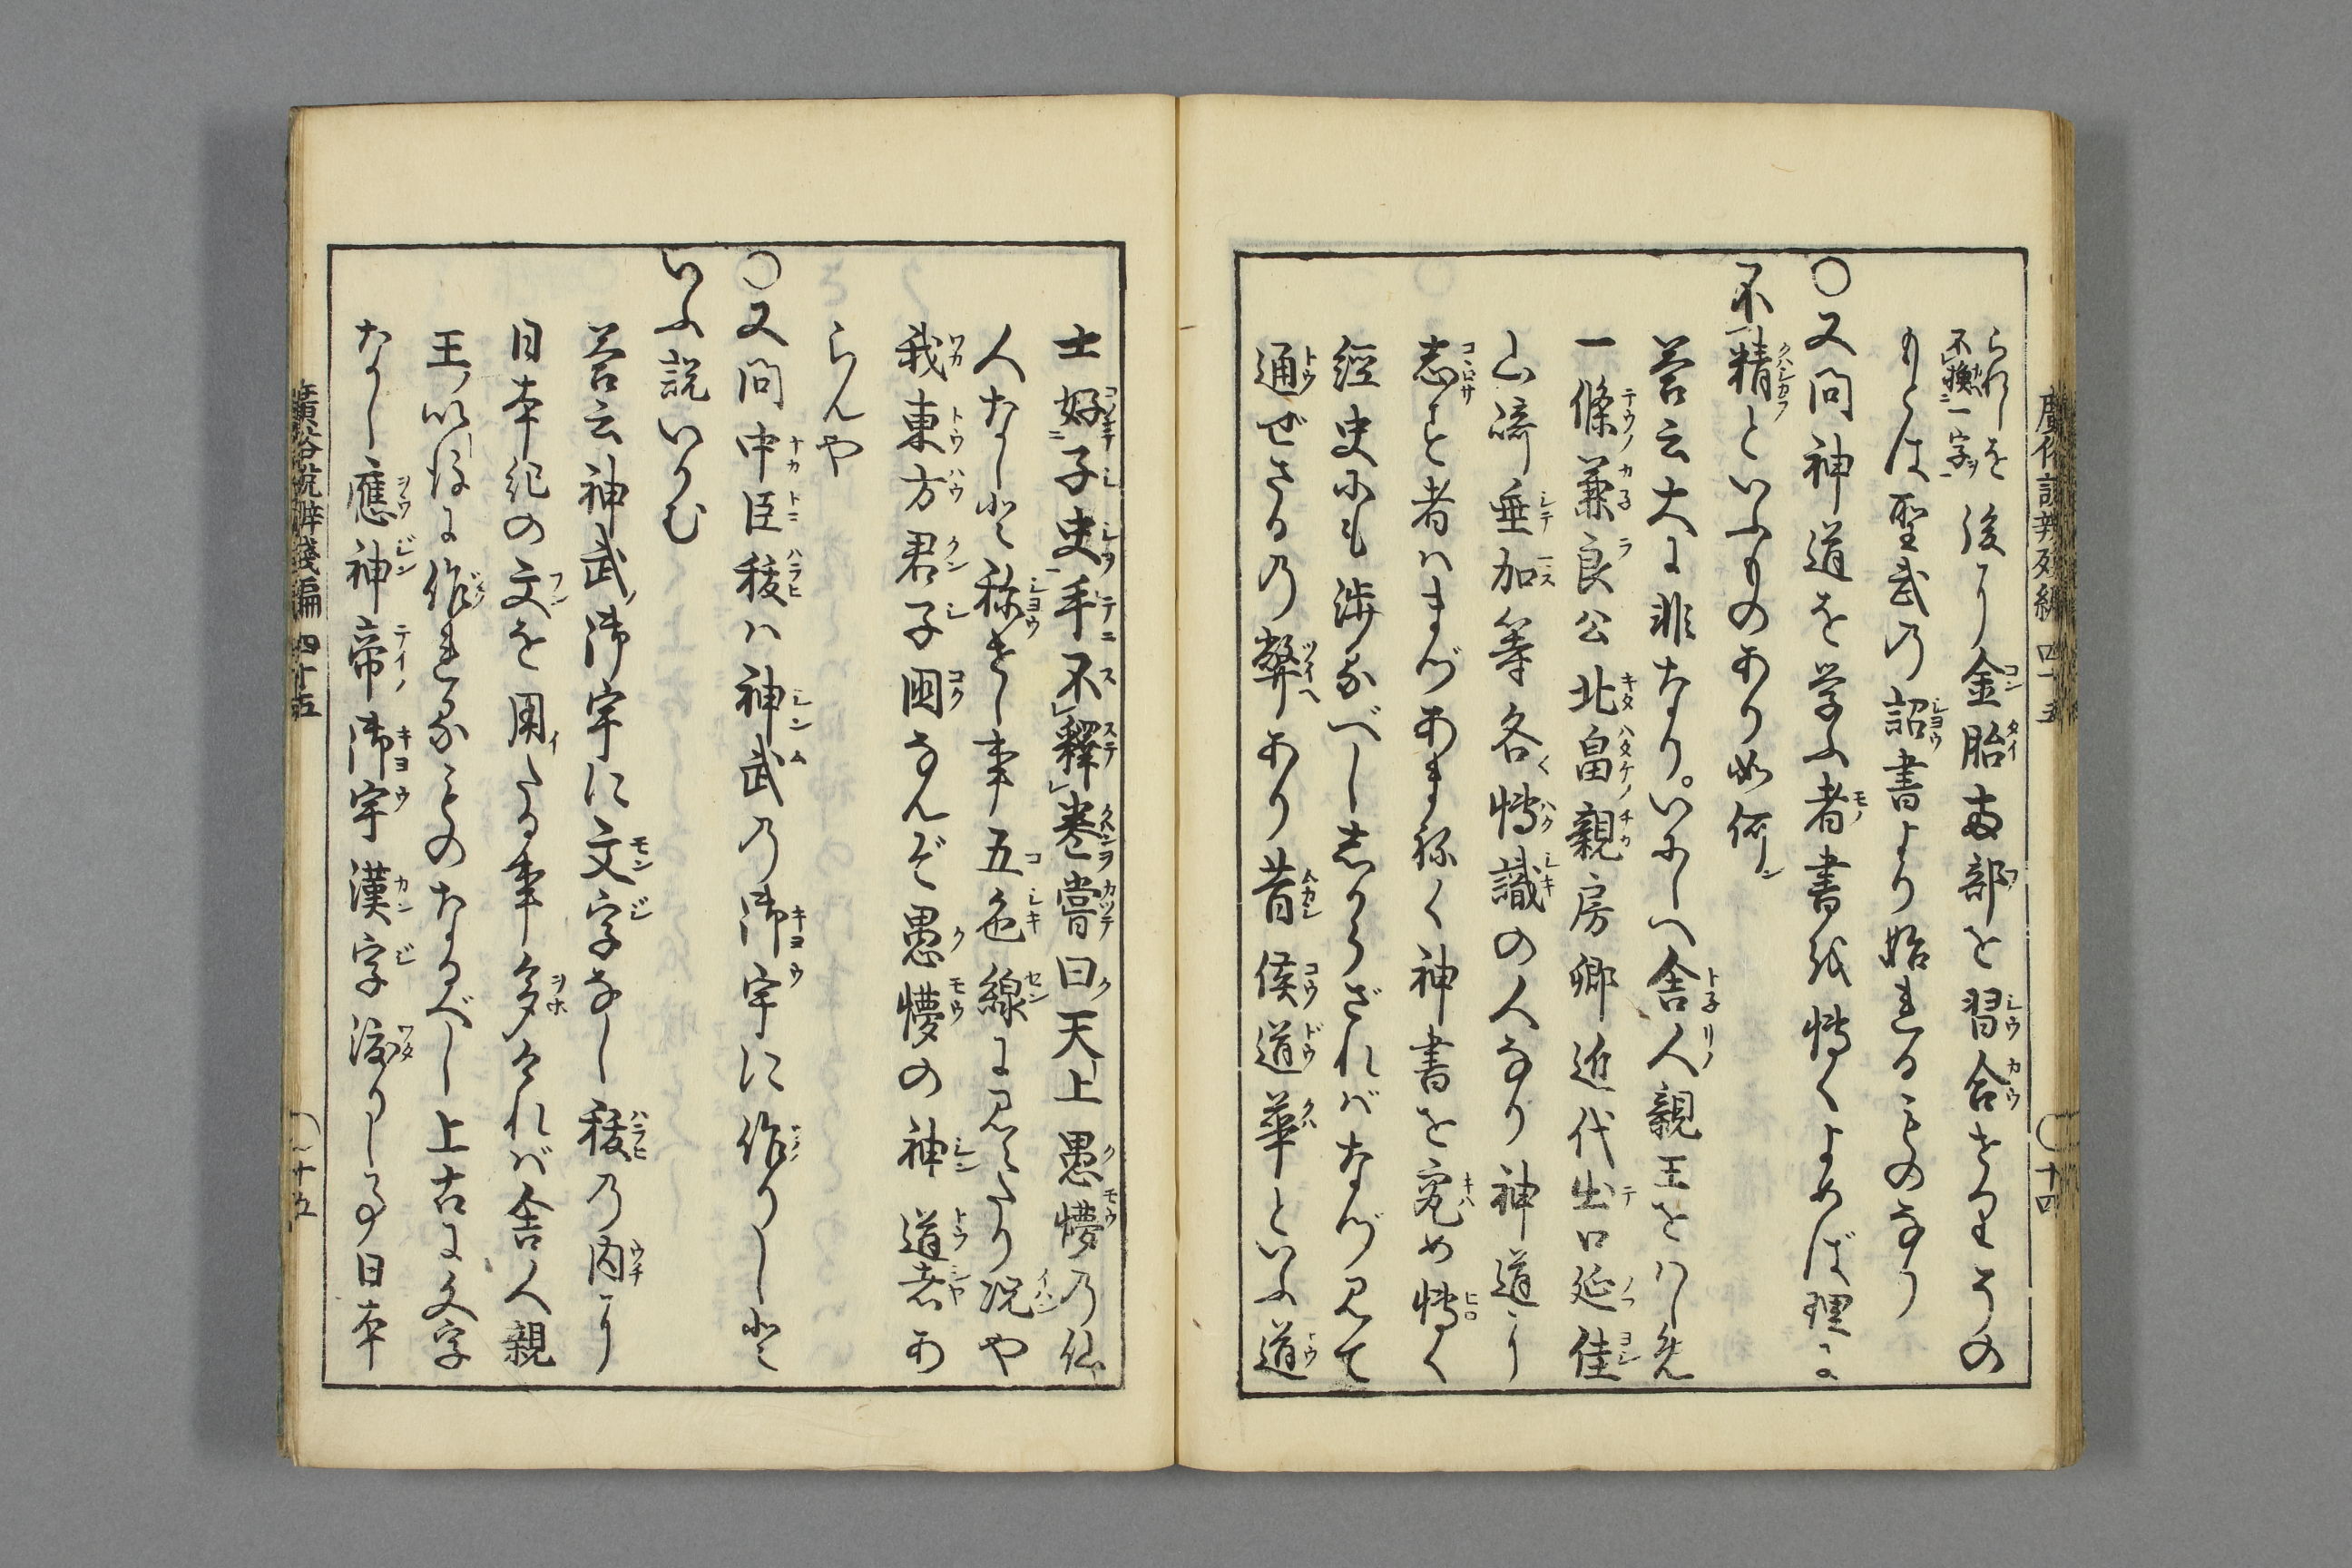 られしを後に金胎両部を習合せりその
不換一字
もとは聖武の詔書より始れるものなり
○又問神道を学ふ者書を博くよめば理に
不精といふものあり如何
答云大に非なり。いにしへ舎人親王をはじめ
一條兼良公北畠親房卿近代出口延佳
山﨑垂加等各博識の人なり神道に
志す者はまづあまねく神書を究め博く
經史にも渉るべししからざればなづみて
通ぜざるの弊あり昔侯道華といふ道
士好子史手不釋巻嘗曰天上愚懵の仙
人なしと称せし事五色線に見えたり况や
我東方君子國なんぞ愚懵の神道者あ
らんや
○又問中臣祓は神武の御宇に作りしと
いふ説いかむ
答云神武御宇に文字なし祓の内に
日本紀の文を用たる事多ければ舎人親
王以後に作れるものなるべし上古は文字
なし應神帝御宇漢字渡りしゆゑ日本
廣俗説辨殘編 四十五
○十四
廣俗説辨殘編 四十五
○十五